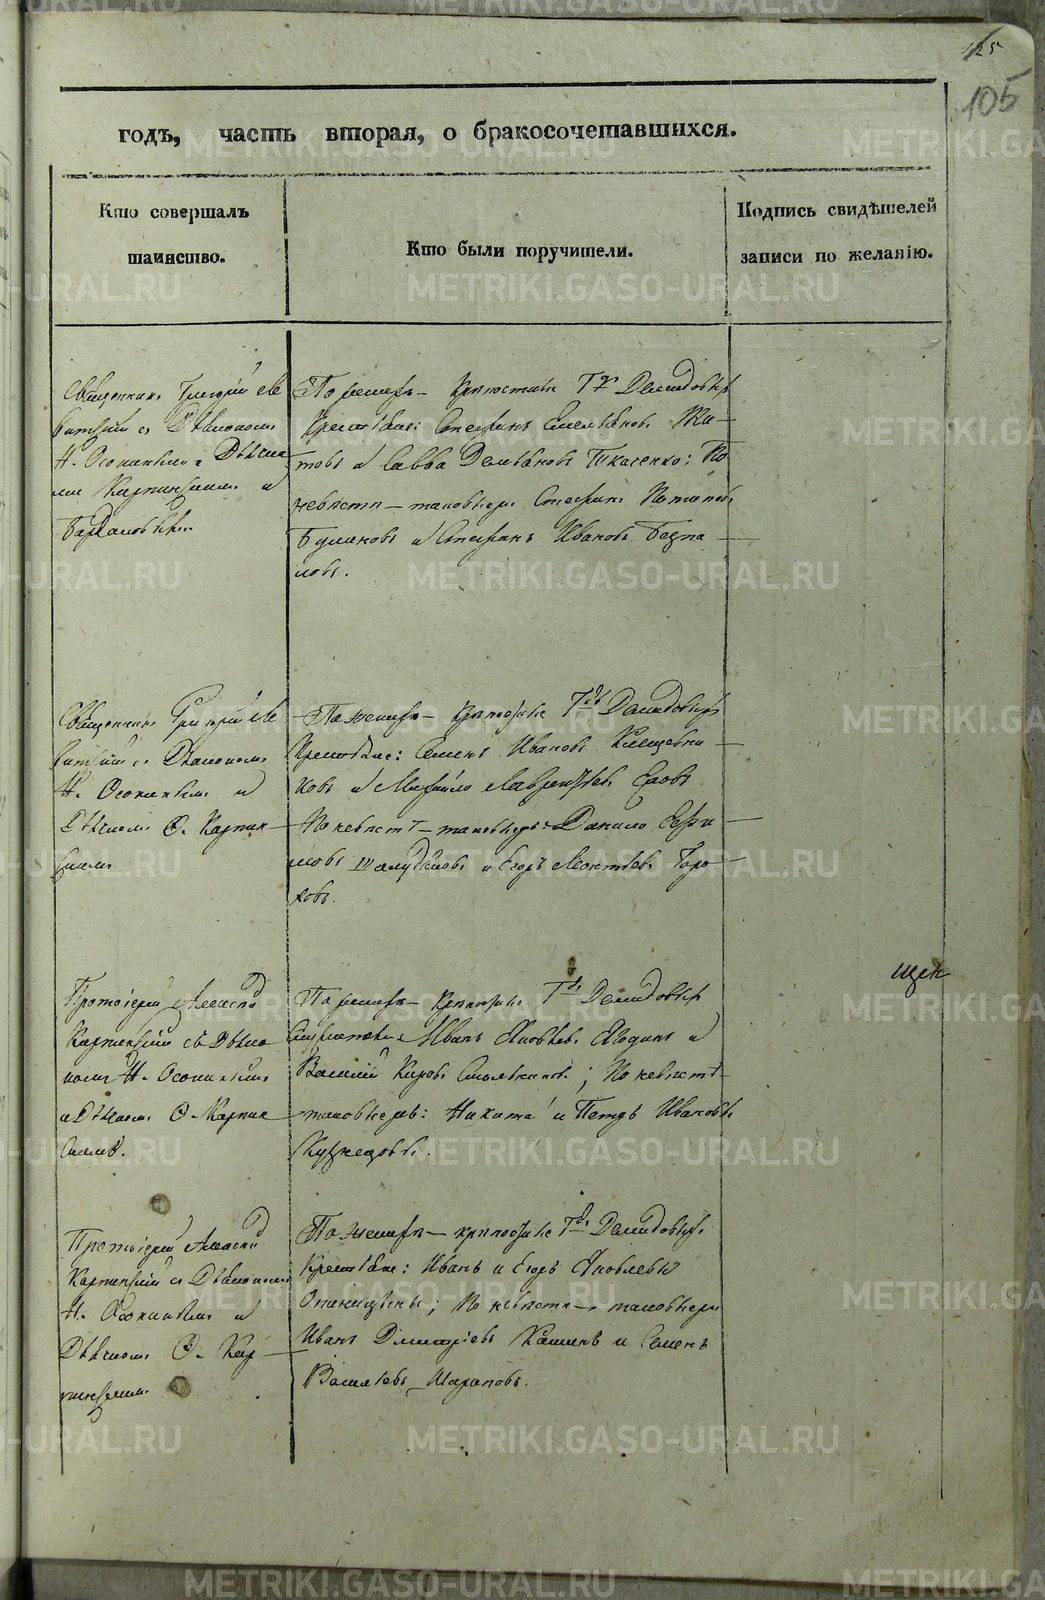 125
105
годъ, часть вторая, о бракосочетавшихся.
Кто совершалъ
таинство.
Кто были поручители.
Подпись свидѣтелей
записи по желанію.
Священникъ Григорій Ле
витскій съ Діакономъ
Н. Осокинымъ Дьячка
ми Карпинскимъ и
По женихѣ — крѣпостные Гдъ Демидовыхъ
Крестьяне: Стефанъ Емельяновъ Ти-
товъ и Савва Демьяновъ Ткаченко; По
невѣстѣ — таковыеже Стефанъ Потаповъ
и Стефанъ Ивановъ Безпа-
ловъ.
Священникъ Григорій Ле
витскій съ Діакономъ
Н. Осокинымъ и
Дьячкомъ Ѳ. Карпин-
скимъ
По женихѣ — крѣпостные Гдъ Демидовыхъ
Крестьяне: Семенъ Ивановъ Клещевни-
ковъ и Михайло Лаврентьевъ Еловъ
По невѣстѣ — таковыеже: Данило Ефи-
мовъ и Егоръ Леонтьевъ Горо-
ховъ.
щен
Протоіерей Алексѣй
Карпинскій съ Діако
номъ Н. Осокинымъ
и Дьячкомъ Ѳ. Карпин-
скимъ.
По женихѣ — крѣпостные Гдъ Демидовыхъ
Иванъ Яковлевъ Ягодинъ и
Василій Кировъ; По невѣстѣ —
таковыежъ: Никита и Петръ Ивановы
Кузнецовы.
Протоіерей Алексѣй
Карпинскій съ Діакономъ
Н. Осокинымъ и
Дьячкомъ Ѳ. Кар-
пинскимъ.
По женихѣ — крѣпостные Гдъ Демидовыхъ
Крестьяне: Иванъ и Егоръ Яковлевы
По невѣстѣ — таковыеже
Иванъ Дмитріевъ Кашинъ и Семенъ
Васильевъ Шараповъ.
METRIKI.GASO-URAL.RU